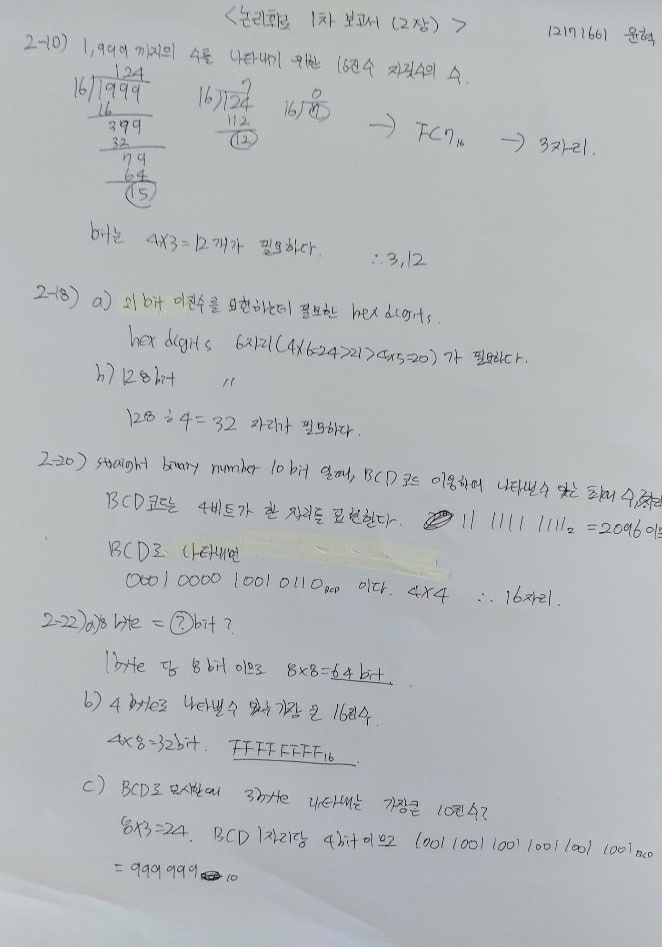 <논리회로 1차 보고서 (2장)> 12171661 윤혁
2-10) 1,999 까지의 수를 나타내기 위한 16진수 자릿수의 수.
124 7 0
16)1999 16)124 16)7
16 112
399 12 → 7CF₁₆ → 3자리.
32
79
64
15
bit는 4X3=12개가 필요하다. ∴3,12
2-18) a) 21 bit 이진수를 표현하는데 필요한 hex digits.
hex digits 6자리(4X6=24>21>4X5=20)가 필요하다.
b) 128bit 〃
128÷4=32 자리가 필요하다.
2-20) straight binary number 10bit 일때, BCD 코드 이용하여 나타낼수 있는
BCD 코드는 4비트가 한 자리를 표현한다. 11 1111 1111₂ =2096 이
BCD로 나타내면
0001 0000 1001 0110 BCD 이다. 4X4 ∴ 16자리.
2-22)a)8 byte = ?bit?
1byte 당 8bit 이므로 8x8=64 bit
b) 4 byte로 나타낼수 있는 가장 큰 16진수.
4x8=32bit. FFFFFFFF₁₆
c) BCD로 표시할때 3byte 나타내는 가장큰 10진수?
8x3=24. BCD 1자리당 4bit이므로 1001 1001 1001 1001 1001 1001 BCD
= 999999 ₁₀